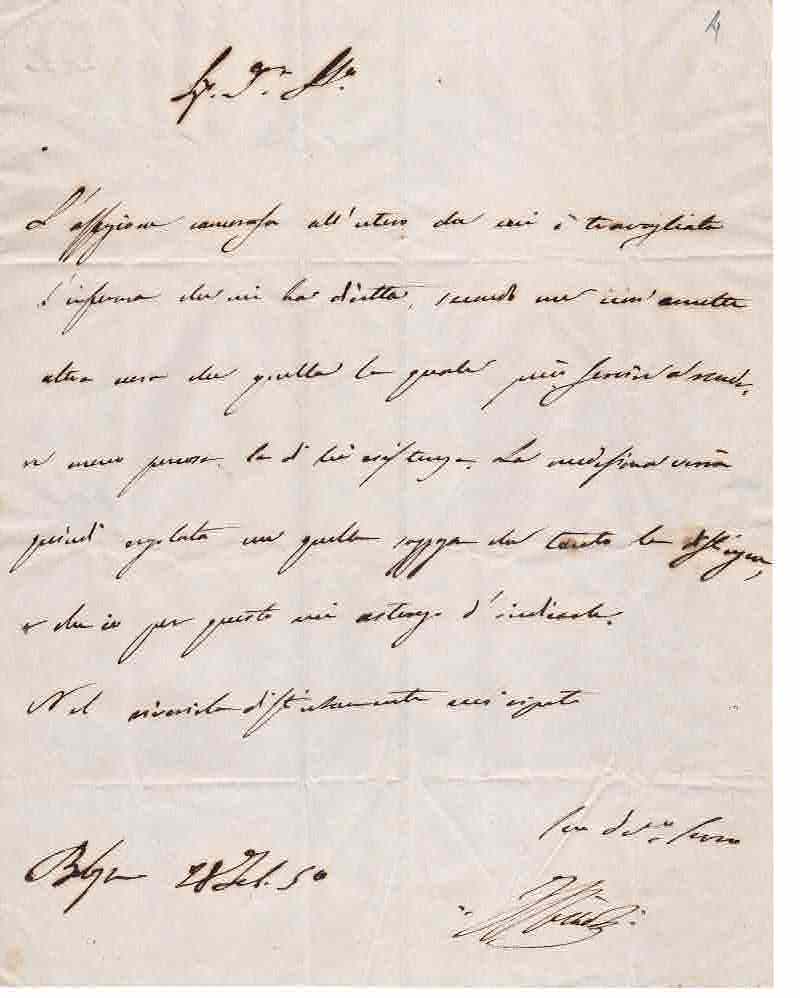 4
L'affezione cancerosa all'utero da cui è travagliata
l'inferma che mi ha diretta, secondo me non ammette
altra cura che quella la quale può servire a rende-
re meno penosa la di lei esistenza. La medesima verrà
quindi regolata con quella saggezza che tanto la distingue,
e che io per questo mi astengo d'indicarle.
Nel riverirla distintamente mi ripeto
Suo dev.mo Servo
Bologna 28 Feb. 50